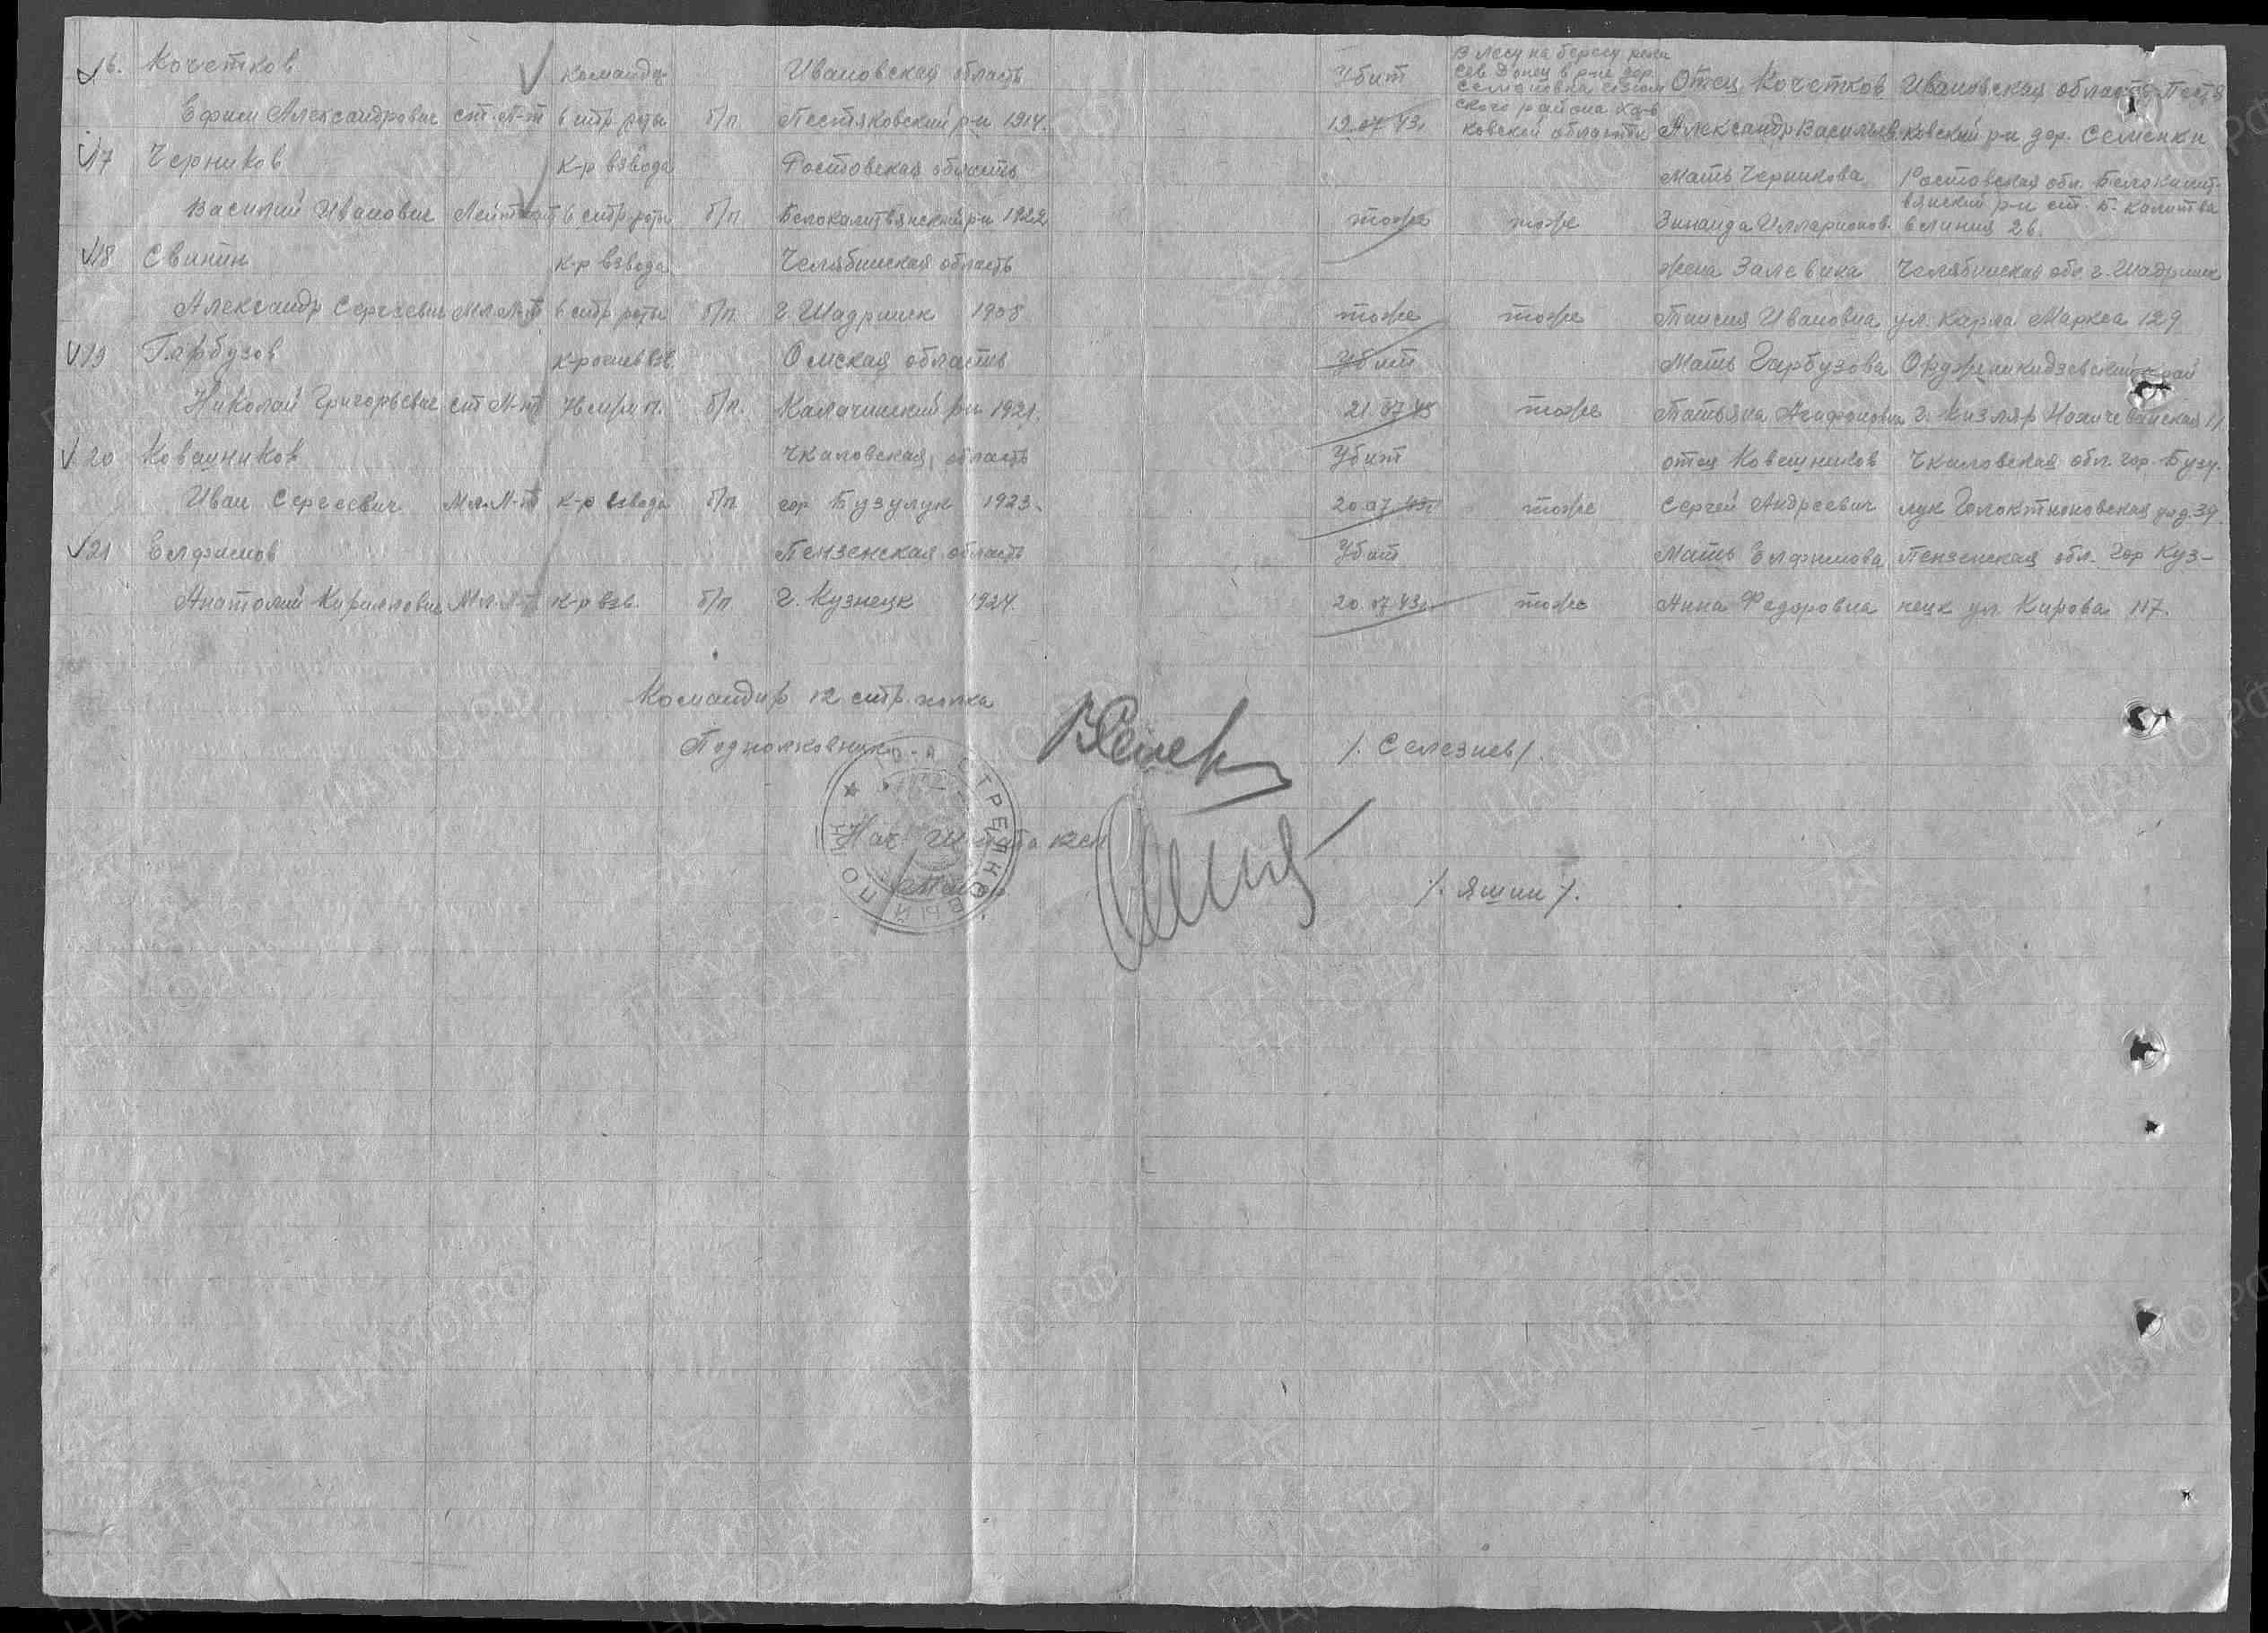 16. Кочетков Командир Ивановская область Убит В лесу на берегу реки
Сев. Донец в р-не дер. Отец Кочетков Ивановская область Пестя
ского района Харь
Ефим Александрович ст. л-т 6 стр роты б/п Пестяковский р-н 1914. 19.07.43. ковской области Александр Василье ковский р-н дер. Семенки
17 Черников к-р взвода Ростовская область Мать Черникова Ростовская обл. Белокалит-
вянский р-н ст. Б. Калитва
Василий Иванович Лейтенант 6 стр. роты б/п. Белокалитвянский р-н 1922 тоже тоже Зинаида Илларионов. 6 линия 26.
18 Свинин к-р взвода Челябинская область жена Залевина Челябинская обл. г. Шадринск
Александр Сергеевич Мл. Л-т 6 стр роты б/п. г. Шадринск 1908 тоже тоже Таисия Ивановна ул. Карла Маркса 129
19 Гарбузов Омская область Убит Мать Гарбузова Орджоникидзевский край
Николай Григорьевич ст л-т б/п. Калачинский р-н 1921. 21.07.43 тоже Татьяна Агафоновна г. Кизляр Нахичеванская 11
20 Ковешников Чкаловская область Убит отец Ковешников Чкаловская обл. гор. Бузу-
Иван Сергеевич Мл. Л-т к-р взвода б/п гор Бузулук 1923. 20.07.43 тоже Сергей Андреевич лук д. 39.
21 Елфимов Пензенская область Убит Мать Елфимова Пензенская обл. гор Куз-
Анатолий Кириллович Мл. Л-т к-р взв. б/п г. Кузнецк 1924. 20.07.43 тоже Анна Федоровна нецк ул. Кирова 117.
Командир 12 стр. полка
Подполковник /. Селезнев /.
Нач. Штаба 12 сп
Майор /. Яшин /.
СТРЕЛКОВЫЙ ПОЛК
ПАМЯТЬ
НАРОДА
ЦАМО РФ